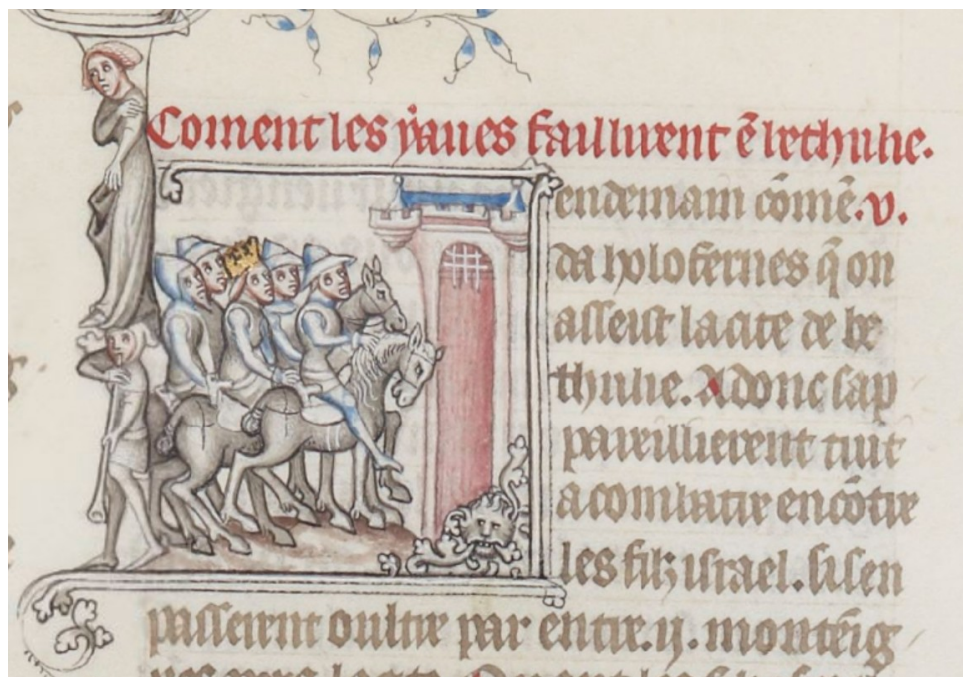 Coment les yaues faillirent ē bethulie.
endemain cōmē. v.
da holofernes q̄ on
asseist la cite de be
thulie. Adonc sap
pareillierent tuit
a combatre encōtre
les filz israel. si sen
passerent oultre par entre .ij. montēig